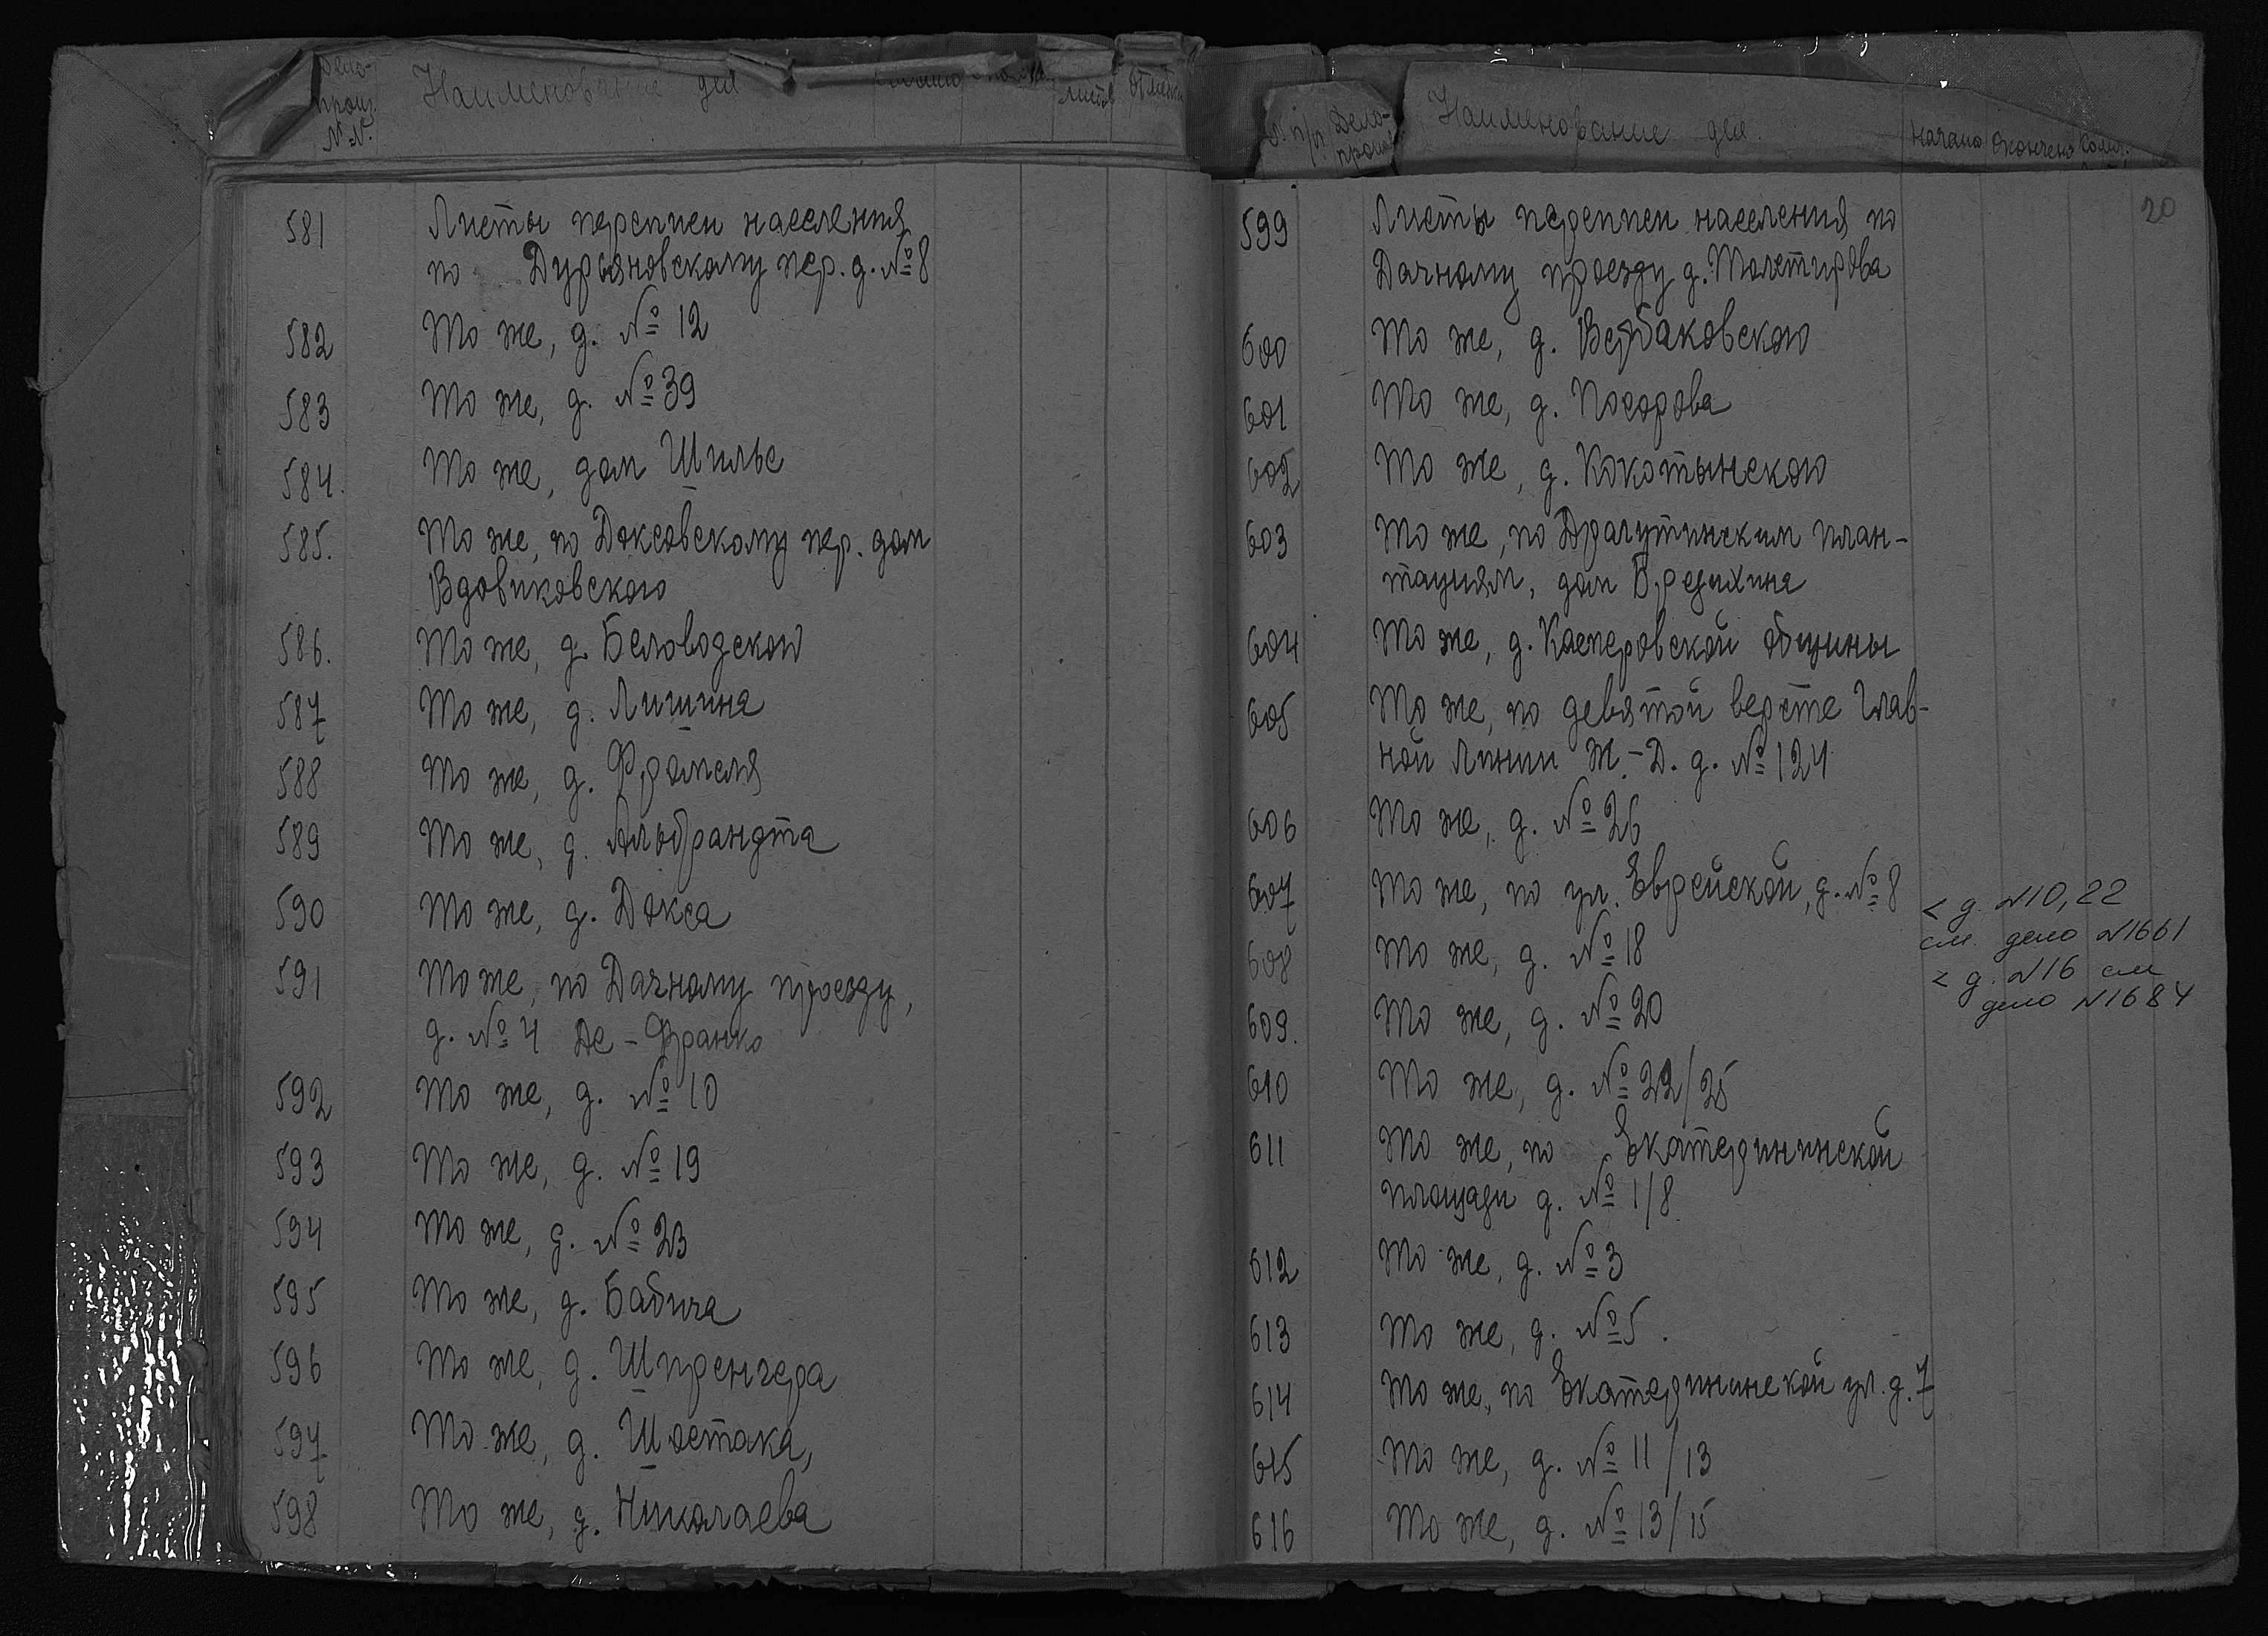 Дело-
произ.
№№.
Наименование дел
листов
№ п/п
Дело-
произ
Наименование дел.
Начало Окончено Колич.
20
581 Листы переписи населения
по Дурьяновскому пер. д. №8
582 То же, д. № 12
583 То же, д. № 39
584. То же, дом Шильс
585. То же, по Доксовскому пер. дом
Вдовиковского
586. То же, д. Беловодского
587 То же, д. Лишина
588 То же, д. Фромеля
589 То же, д. Альбрандта
590 То же, д. Докса
591 То же, по Дачному проезду,
д. № 4 Де-Франко
592 То же, д. № 10
593 То же, д. № 19
594 То же, д. № 23
595 То же, д. Бабича
596 То же, д. Шпренгера
597 То же, д. Шостака,
598 То же, д. Николаева
599 Листы переписи населения по
Дачному проезду д.
600 То же, д. Вербаковского
601 То же, д. Посорова
602 То же, д. Кокотынского
603 То же, по Драгутинским план-
тациям, дом Бредихина
604 То же, д. Касперовской общины
605 То же, по девятой версте Глав-
ной Линии Ж.-Д. д. № 124
606 То же, д. № 26
607 То же, по ул. Еврейской, д. № 8
< д. №10, 22
см. дело №1661
608 То же, д. № 18
< д. №16 см
дело №1684
609. То же, д. № 20
610 То же, д. № 22/25
611 То же, по Екатерининской
площади д. № 1/8
612 То же, д. № 3
613 То же, д. № 5.
614 То же, по Екатерининской ул. д. 7
615 То же, д. № 11/13
616 То же, д. № 13/15